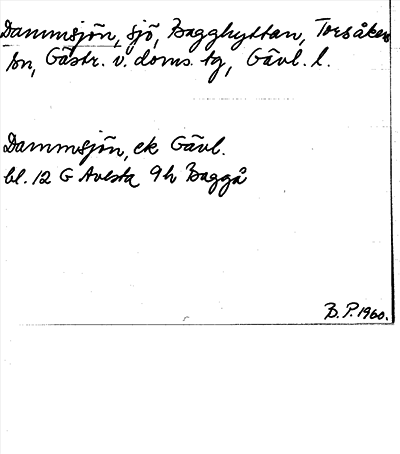 Dammsjön, sjö, Bagghyttan, Torsåkers
sn, Gästr. v. doms. tg, Gävl. l.
Dammsjön, ek Gävl.
bl. 12 G Avesta 9h Baggå
B. P. 1960.